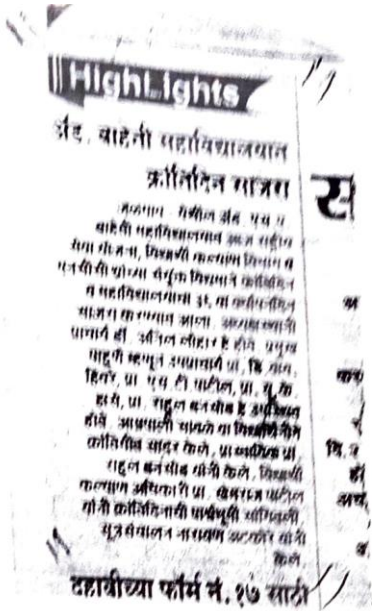 HighLights
अ‍ॅड. बाहेती महाविद्यालयात
क्रांतिदिन साजरा
जळगाव - येथील अ‍ॅड. एस.ए.
बाहेती महाविद्यालयात आज राष्ट्रीय
सेवा योजना, विद्यार्थी कल्याण विभाग व
एनसीसी यांच्या संयुक्त विद्यमाने क्रांतिदिन
व महाविद्यालयाचा वा वर्धापनदिन
साजरा करण्यात आला. अध्यक्षस्थानी
प्राचार्य डॉ. अनिल लोहार हे होते. प्रमुख
पाहुणे म्हणून उपप्राचार्य प्रा. डि. आर.
हिवरे, प्रा. एस. टी. पाटील, प्रा. यु. के.
प्रा. राहुल बनसोड हे उपस्थित
होते. आम्रपाली या विद्यार्थिनीने
क्रांतिगीत सादर केले. प्रास्ताविक प्रा.
राहुल बनसोड यांनी केले. विद्यार्थी
कल्याण अधिकारी प्रा. खेमराज पाटील
यांनी क्रांतिदिनाची पार्श्वभूमी सांगितली.
सूत्रसंचालन नारायण अटकोरे यांनी
केले.
दहावीच्या फॉर्म नं. १७ साठी
स